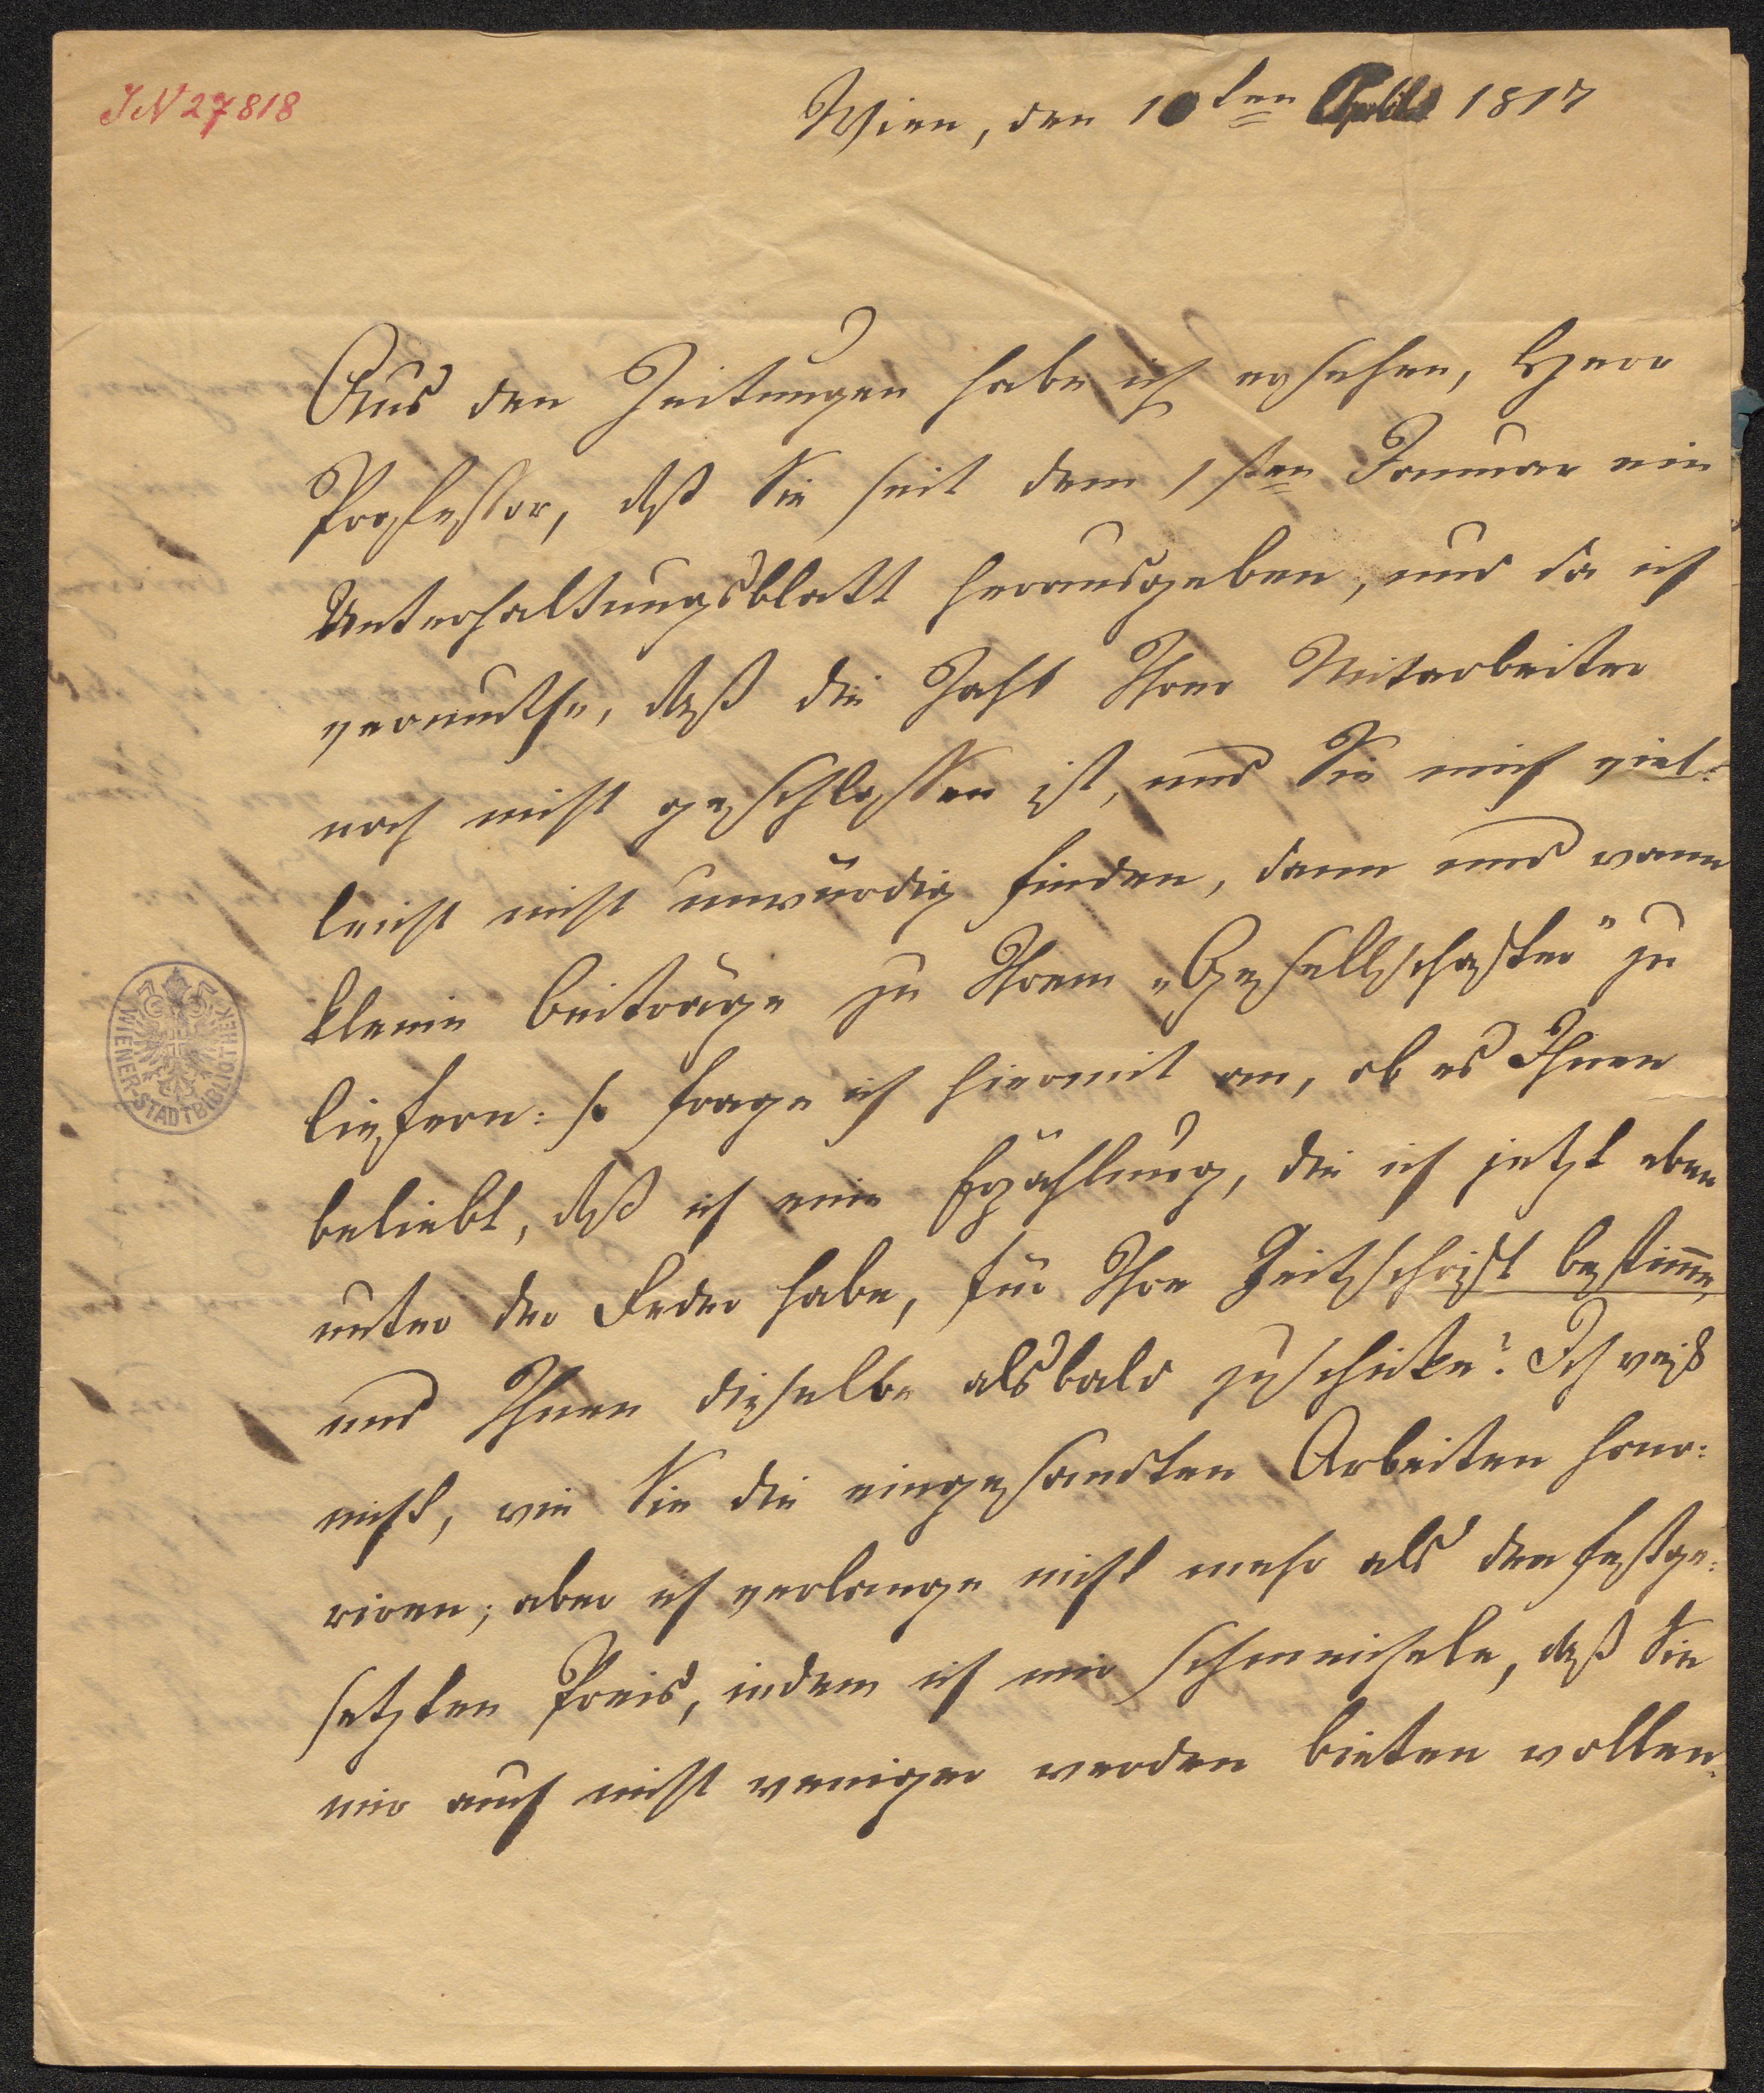 IN 27818
Wien, den 10ten April 1817
Aus den Zeitungen habe ich ersehen, Herr
Professor, daß Sie seit dem 1sten Januar ein
Unterhaltungsblatt herausgeben, und da ich
vermuthe, daß die Zahl Ihrer Mitarbeiter
noch nicht geschlossen ist, und Sie mich viel-
leicht nicht unwürdig finden, dann und wann
kleine Beiträge zu Ihrem „Gesellschafter" zu
liefern: so frage ich hiermit an, ob es Ihnen
beliebt, daß ich eine Erzählung, die ich jetzt eben
unter der Feder habe, für Ihre Zeitschrift bestimme,
und Ihnen dieselbe alsbald zuschicke? Ich weiß
nicht, wie Sie die eingesandten Arbeiten hono-
riren; aber ich verlange nicht mehr als den festge-
setzten Preis, indem ich mir schmeichele, daß Sie
mir auch nicht weniger werden bieten wollen.
WIENER-STADTBIBLIOTHEK